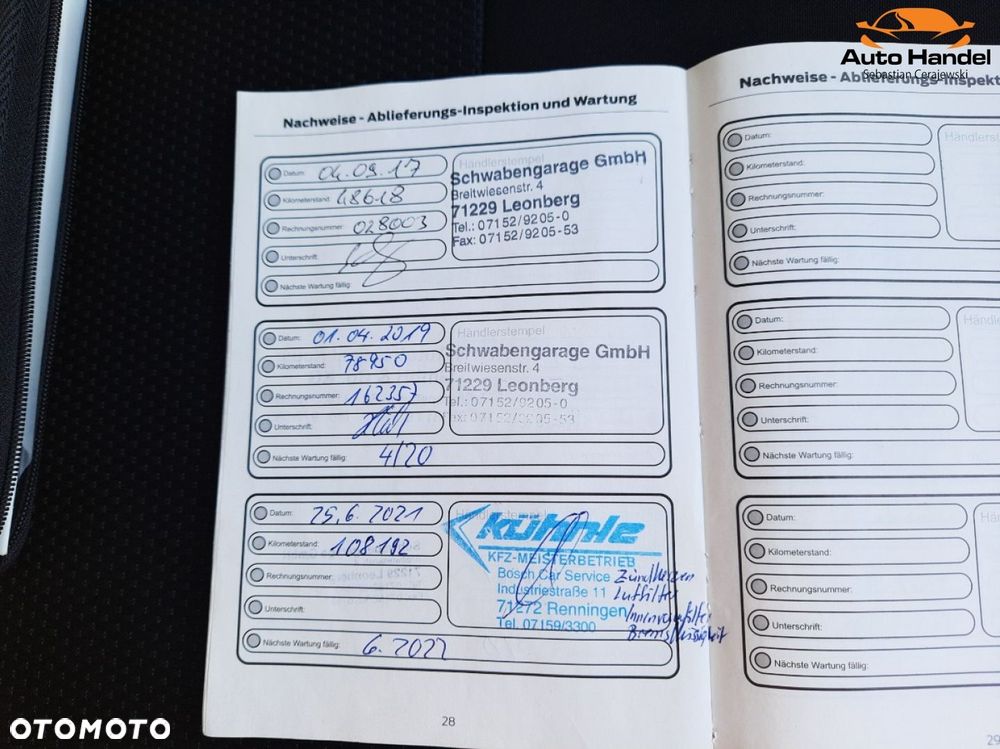 Auto Handel
Sebastian Cerajewski
Nachweise - Ablieferungs-Inspektion und Wartung
Datum: 04.09.17
Kilometerstand: 48618
Rechnungsnummer: 028003
Unterschrift:
Nächste Wartung fällig:
Händlerstempel
Schwabengarage GmbH
Breitwiesenstr. 4
71229 Leonberg
Tel.: 07152/9205-0
Fax: 07152/9205-53
Datum: 01.04.2019
Kilometerstand: 78950
Rechnungsnummer: 162357
Unterschrift:
Nächste Wartung fällig: 4/20
Händlerstempel
Schwabengarage GmbH
Breitwiesenstr. 4
71229 Leonberg
Tel.: 07152/9205-0
Fax: 07152/9205-53
Datum: 25.6.2021
Kilometerstand: 108192
Rechnungsnummer:
Unterschrift:
Nächste Wartung fällig: 6.2022
kühnle
KFZ-MEISTERBETRIEB
Bosch Car Service
Industriestraße 11
71272 Renningen
Tel. 07159/3300
Zündkerzen
Luftfilter
Innenraumfilter
Bremsflüssigkeit
28
Nachweise - Ablieferungs-Inspekt
Datum:
Kilometerstand:
Rechnungsnummer:
Unterschrift:
Nächste Wartung fällig:
Händlerstem
Datum:
Kilometerstand:
Rechnungsnummer:
Unterschrift:
Nächste Wartung fällig:
Händle
Datum:
Kilometerstand:
Rechnungsnummer:
Unterschrift:
Nächste Wartung fällig:
Hä
29
OTOMOTO